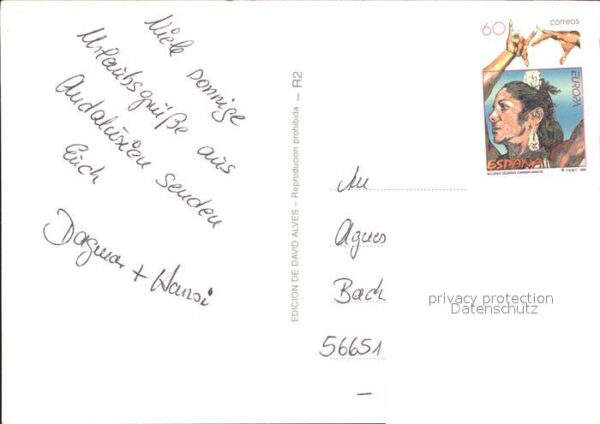 Viele sonnige
Urlaubsgrüße aus
Andalusien senden
Euch
Dagmar + Hansi
EDICION DE DAVID ALVES – Reproduccion prohibida – R2
60
correos
EUROPA
ESPAÑA
An
Agnes
Bach
56651
–
privacy protection
Datenschutz